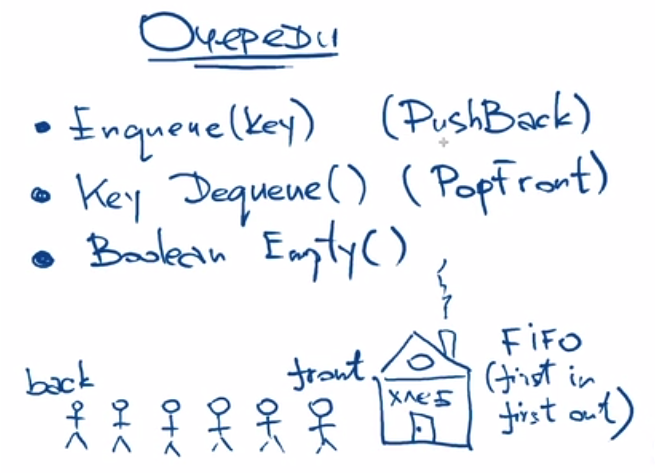 Очереди
• Enqueue(key) (PushBack)
• Key Dequeue() (PopFront)
• Boolean Empty()
back
front
хлеб
FiFO
(first in
first out)